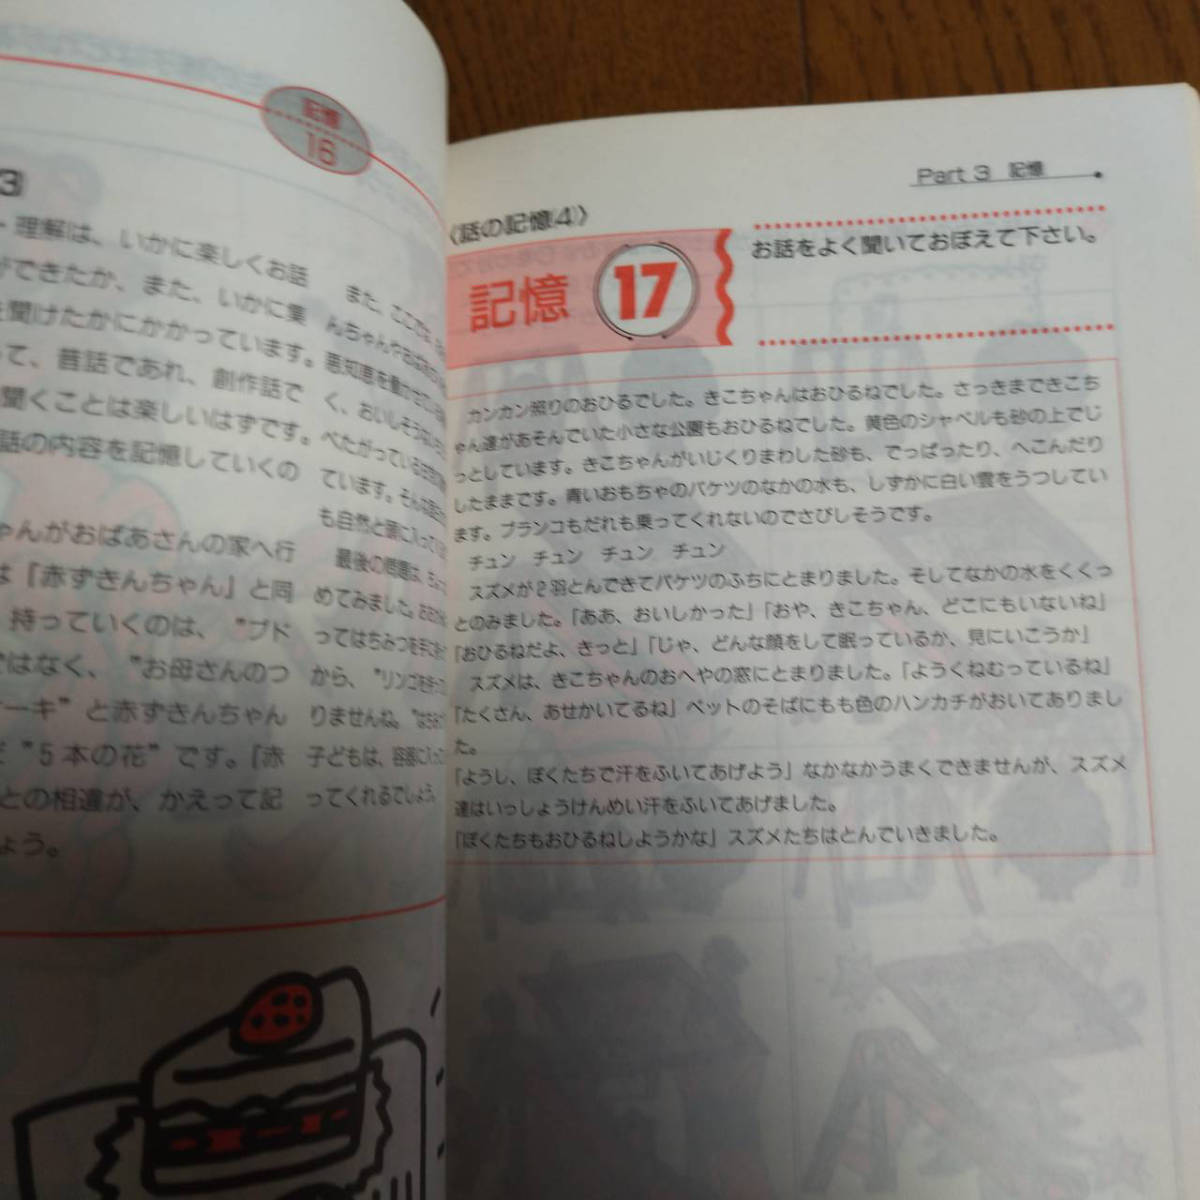 記憶
16
3
・理解は、いかに楽しくお話
ができたか、また、いかに集
を聞けたかにかかっています。
って、昔話であれ、創作話で
聞くことは楽しいはずです。
話の内容を記憶していくの
ゃんがおばあさんの家へ行
は「赤ずきんちゃん」と同
持っていくのは、"ブド
ではなく、"お母さんのつ
ケーキ"と赤ずきんちゃん
"5本の花"です。「赤
との相違が、かえって記
ょう。
また、ここでは、
んちゃんやおおかみ
悪知恵を働かせている
く、おいしそうな
べたがっている
ています。そんな
も自然と頭に入って
最後の問題は、ちょ
めてみました。
ってはちみつを手に
から、"リンゴを
りませんね。
子どもは、容器に入っ
ってくれるでしょう。
Part 3 記憶
〈話の記憶④〉
記憶 17
お話をよく聞いておぼえて下さい。
カンカン照りのおひるでした。きこちゃんはおひるねでした。さっきまできこち
ゃん達があそんでいた小さな公園もおひるねでした。黄色のシャベルも砂の上でじ
っとしています。きこちゃんがいじくりまわした砂も、でっぱったり、へこんだり
したままです。青いおもちゃのバケツのなかの水も、しずかに白い雲をうつしてい
ます。ブランコもだれも乗ってくれないのでさびしそうです。
チュン チュン チュン チュン
スズメが2羽とんできてバケツのふちにとまりました。そしてなかの水をくくっ
とのみました。「ああ、おいしかった」「おや、きこちゃん、どこにもいないね」
「おひるねだよ、きっと」「じゃ、どんな顔をして眠っているか、見にいこうか」
スズメは、きこちゃんのおへやの窓にとまりました。「ようくねむっているね」
「たくさん、あせかいてるね」ベットのそばにもも色のハンカチがおいてありまし
た。
「ようし、ぼくたちで汗をふいてあげよう」なかなかうまくできませんが、スズメ
達はいっしょうけんめい汗をふいてあげました。
「ぼくたちもおひるねしようかな」スズメたちはとんでいきました。